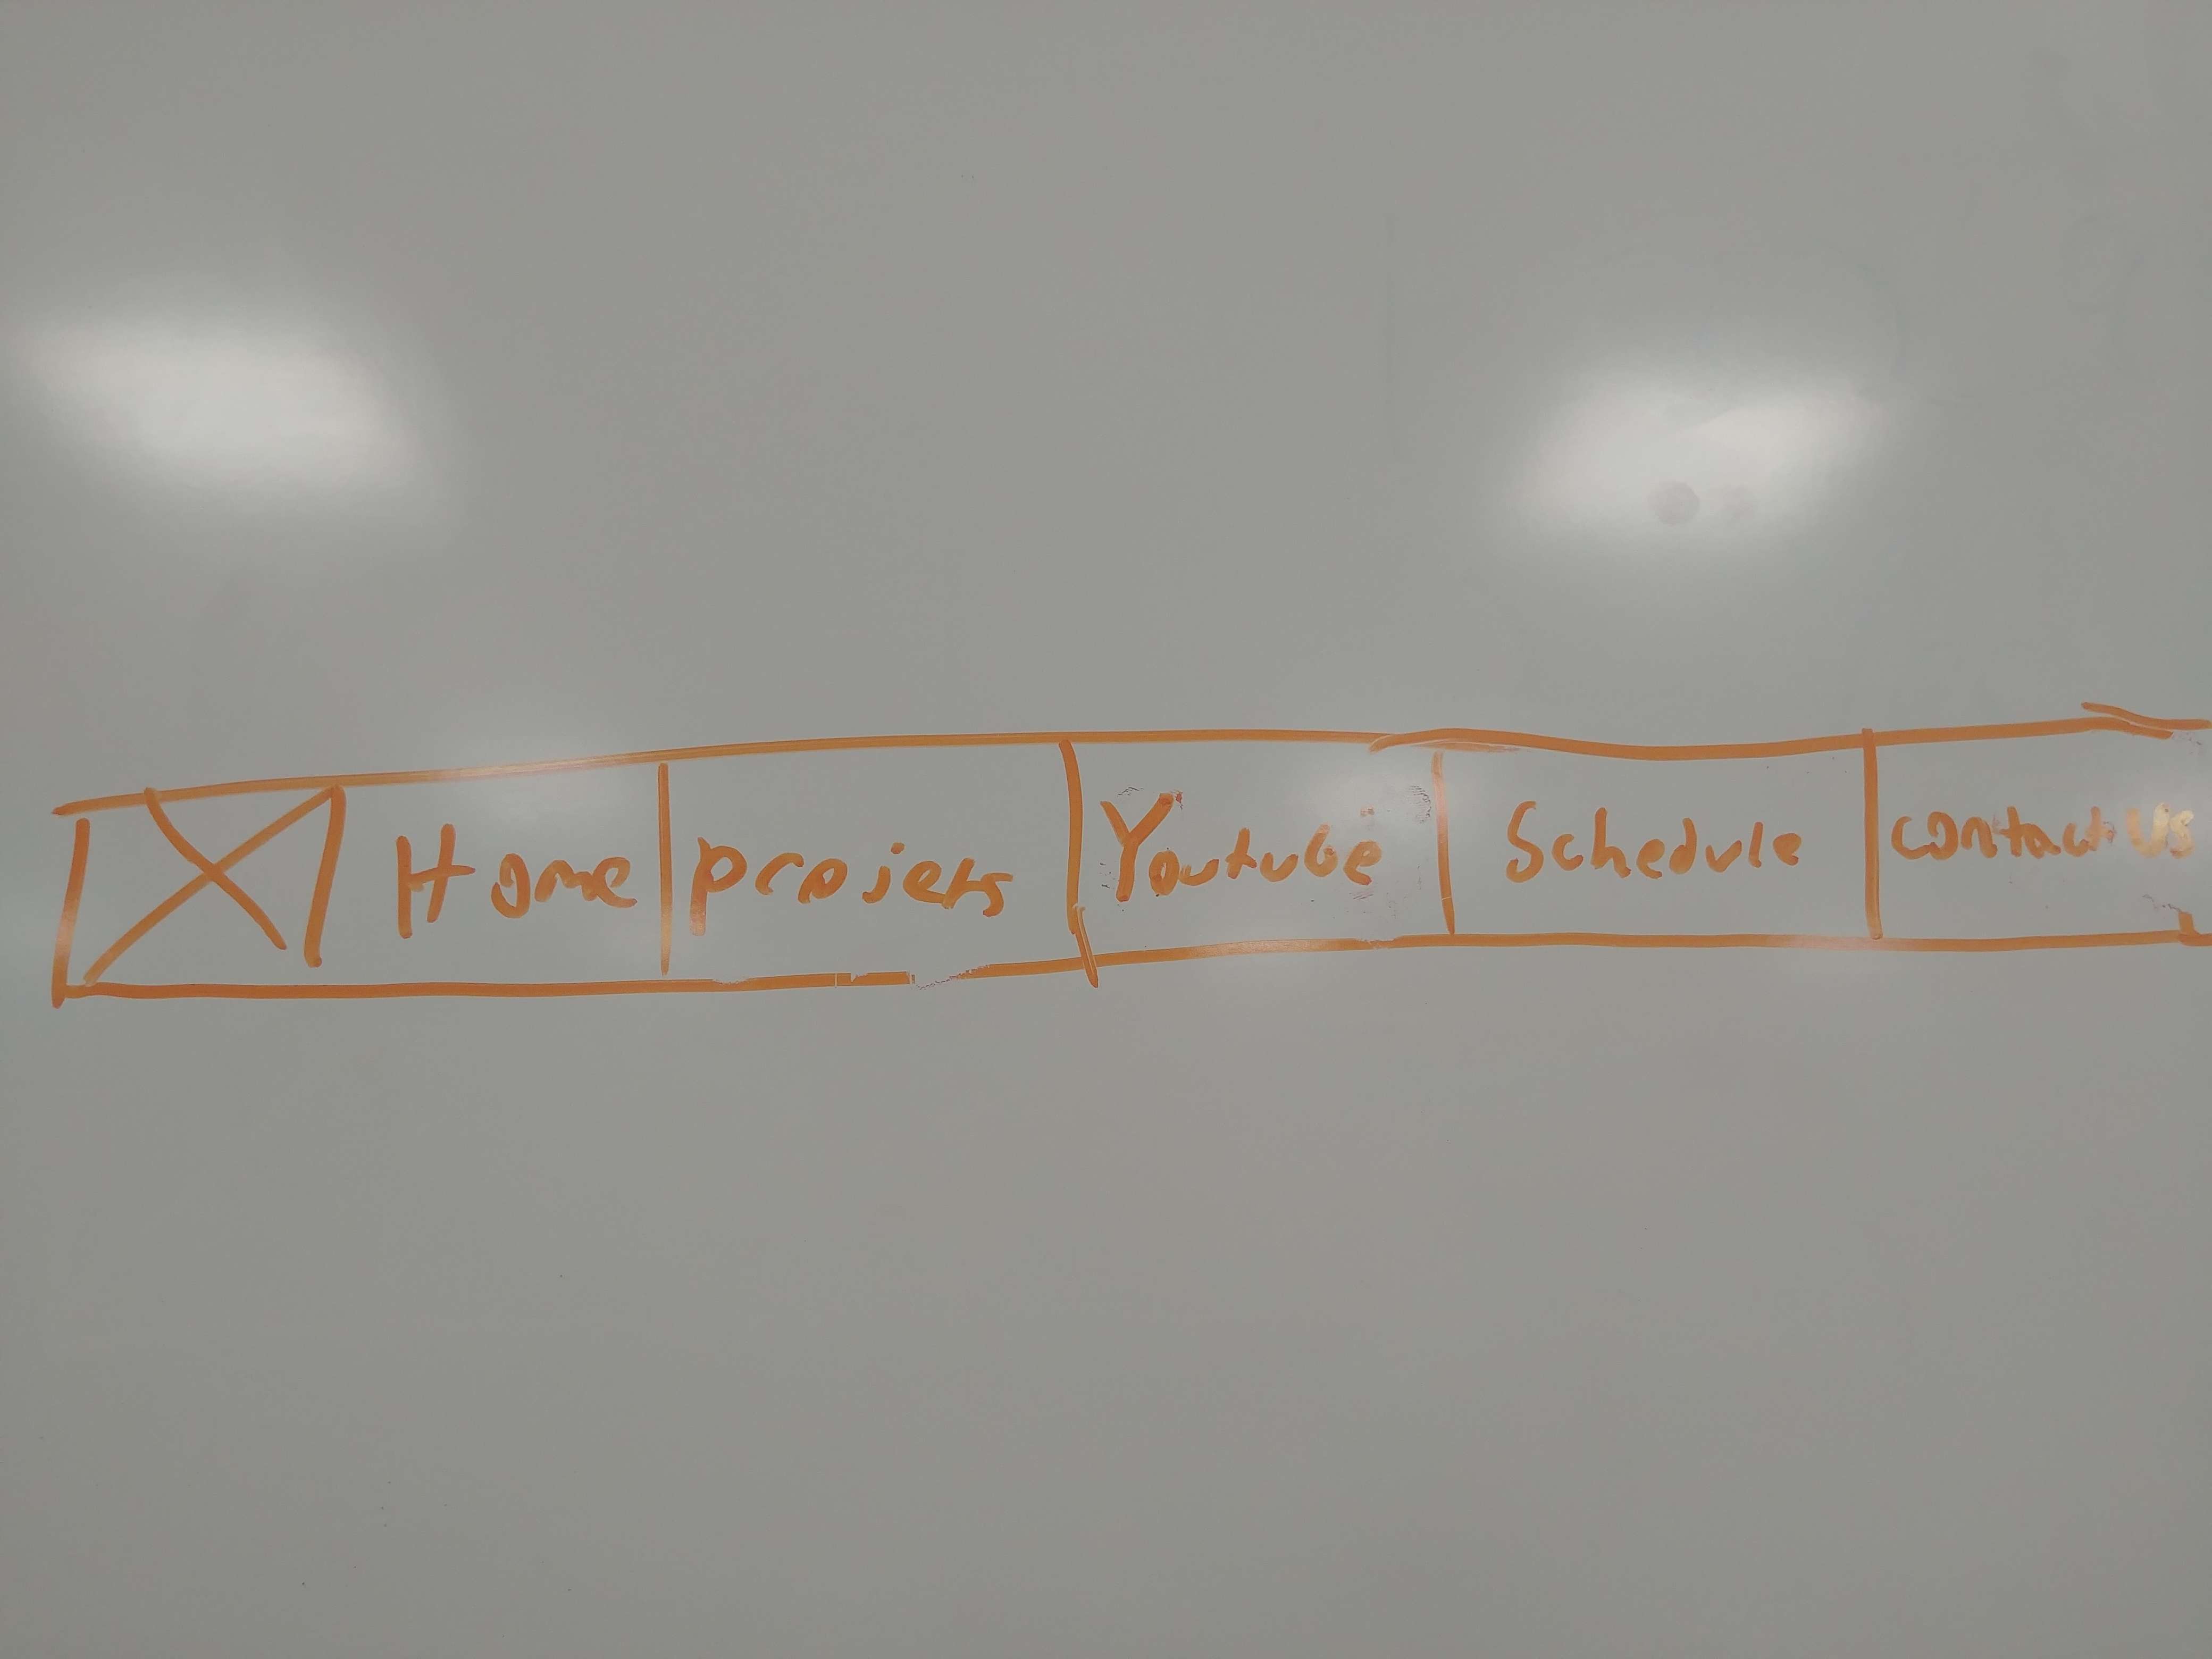 Home projects Youtube Schedule contact us